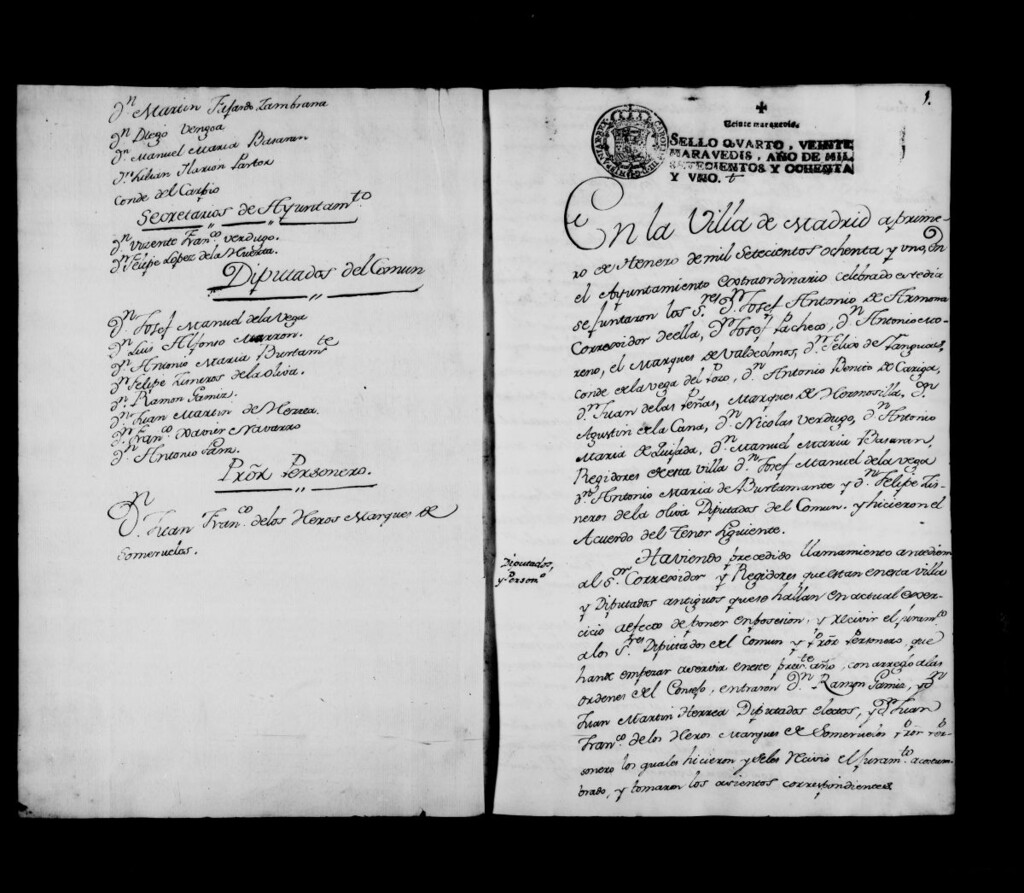 Dn Martin Fajardo Zambrana
Dn Diego Vengoa
Dn Manuel Maria Basaran
Dn Julian Marion Pastor
Conde del Carpio
Secretarios de Ayuntamto
Dn Vizente Franco Verdugo.
Dn Felipe Lopez de la Huerta.
Diputados del Comun
Dn Josef Manuel de la Vega
Dn Luis Alfonso Marron.
Dn Antonio Maria Bustamte
Dn Felipe Tineros de la Oliva.
Dn Ramon Gamiz.
Dn Juan Martin de Herrea.
Dn Franco Xavier Navarro
Dn Antonio
Prõr Personero.
Dn Juan Franco de los Heros Marques de
Someruelos.
1.
Veinte maravedis.
SELLO QVARTO, VEINTE
MARAVEDIS, AÑO DE MIL
SETECIENTOS Y OCHENTA
Y VNO.
En la Villa de Madrid a prime-
ro de Henero de mil Setecientos ochenta y uno, en
el Ayuntamiento extraordinario celebrado este dia
se juntaron los Sres Dn Josef Antonio de Armona
Corregidor de ella, Dn Josef Pacheco, Dn Antonio Mo-
reno, el Marques de Valdeolmos, Dn Felix de Yanguas,
Conde de la Vega del Pozo, Dn Antonio Benito de Cariga,
Dn Juan de las Peñas, Marques de Hermosilla, Dn
Agustin de la Cana, Dn Nicolas Verdugo, Dn Antonio
Maria de Quijada, Dn Manuel Maria Basaran,
Regidores de esta villa Dn Josef Manuel de la Vega
Dn Antonio Maria de Bustamante y Dn Felipe Tis-
neros de la Oliva Diputados del Comun. y hicieron el
Acuerdo del Tenor siguiente.
Diputados,
y Persono
Haviendo precedido llamamiento antediem
al Sor Corregidor y Regidores que estan en esta villa
y Diputados antiguos que se hallan en actual exer-
cicio a efecto de poner en posesion, y recivir el juramto
a los Sres Diputados del Comun y Prõr Personero, que
han de empezar a servir en este preste año, con arreglo a las
ordenes del Consejo, entraron Dn Ramon Gamiz, y Dn
Juan Martin Herrea Diputados electos, y Dn Juan
Franco de los Heros Marques de Someruelos Prõr Per-
sonero los quales hicieron y se les recivio el juramto acostum-
brado, y tomaron los asientos correspondientes